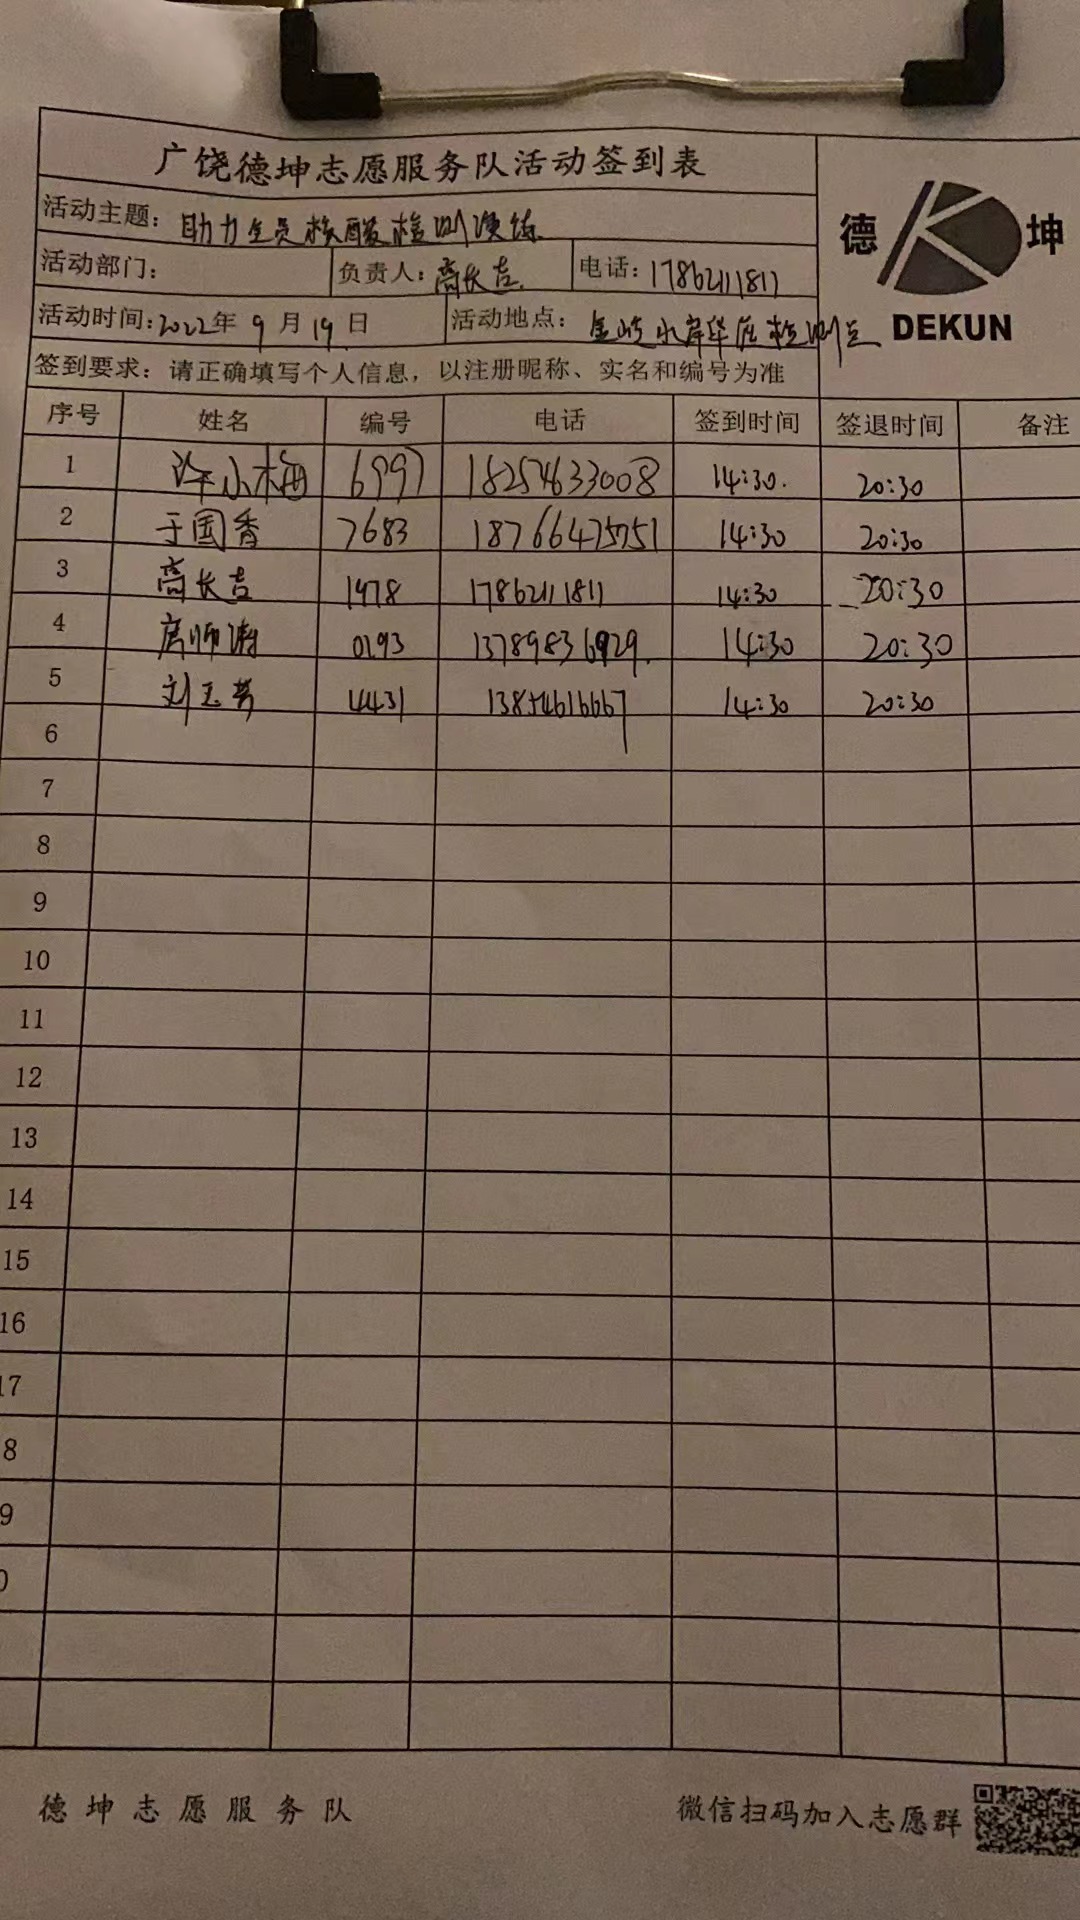 广饶德坤志愿服务队活动签到表
德 坤
DEKUN
活动主题：助力全员核酸检测演练
活动部门： 负责人：高长吉 电话：17862111811
活动时间：2022年9月19日 活动地点：水岸华庭检测点
签到要求：请正确填写个人信息，以注册昵称、实名和编号为准
序号 姓名 编号 电话 签到时间 签退时间 备注
1 小梅 6997 18254633008 14:30. 20:30
2 于国香 7683 18766475751 14:30 20:30
3 高长吉 1478 17862111811 14:30 20:30
4 0293 13789836929. 14:30 20:30
5 刘玉芳 4431 13854616667 14:30 20:30
6
7
8
9
10
11
12
13
14
15
16
17
8
9
0
德坤志愿服务队 微信扫码加入志愿群